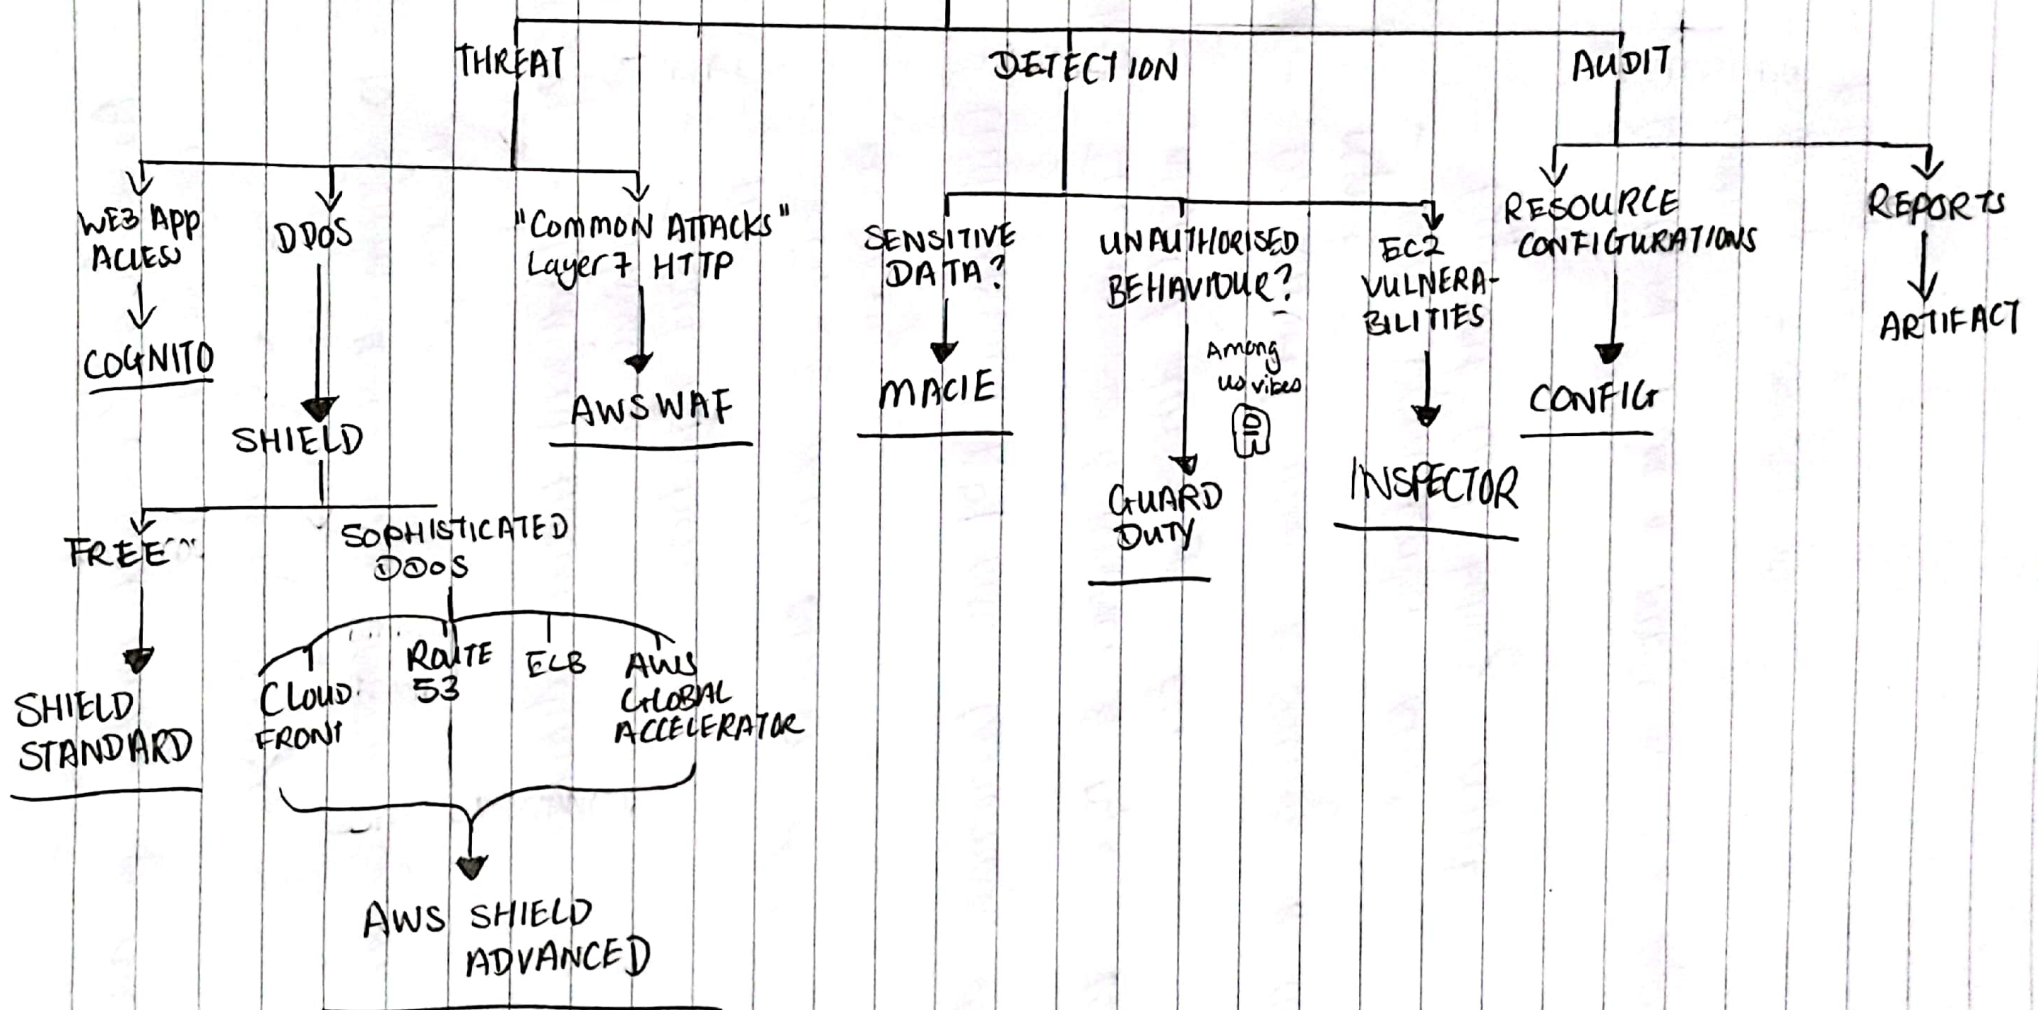 THREAT
DETECTION
AUDIT
WEB APP
ACCESS
COGNITO
DDOS
SHIELD
FREE
SHIELD
STANDARD
SOPHISTICATED
DDOS
CLOUD
FRONT
ROUTE
53
ELB
AWS
GLOBAL
ACCELERATOR
AWS SHIELD
ADVANCED
"COMMON ATTACKS"
Layer 7 HTTP
AWS WAF
SENSITIVE
DATA?
MACIE
UNAUTHORISED
BEHAVIOUR?
Among
us vibes
GUARD
DUTY
EC2
VULNERA-
BILITIES
INSPECTOR
RESOURCE
CONFIGURATIONS
CONFIG
REPORTS
ARTIFACT